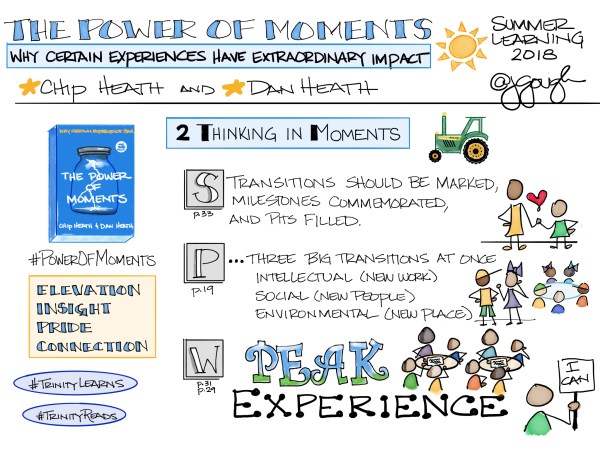 THE POWER OF MOMENTS
WHY CERTAIN EXPERIENCES HAVE EXTRAORDINARY IMPACT
CHIP HEATH AND DAN HEATH
SUMMER
LEARNING
2018
@jgough
2 THINKING IN MOMENTS
THE POWER
OF
MOMENTS
CHIP HEATH & DAN HEATH
#POWEROFMOMENTS
ELEVATION
INSIGHT
PRIDE
CONNECTION
#TRINITYLEARNS
#TRINITYREADS
S
P.33
TRANSITIONS SHOULD BE MARKED,
MILESTONES COMMEMORATED,
AND PITS FILLED.
P
P.19
...THREE BIG TRANSITIONS AT ONCE
INTELLECTUAL (NEW WORK)
SOCIAL (NEW PEOPLE)
ENVIRONMENTAL (NEW PLACE)
W
P.31
P.29
PEAK
EXPERIENCE
I
CAN